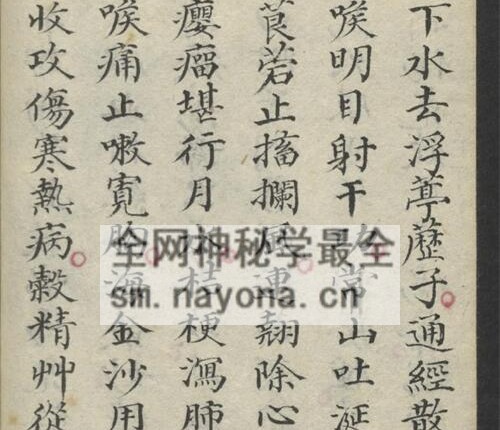 下水去浮葶藶子通經散
喉明目射干常山吐涎
莨菪止搐攔風連翹除心
癭瘤堪行月水桔梗瀉肺
喉痛止嗽寬胸海金沙用
收攻傷寒熱病穀精艸從
全网神秘学最全
sm.nayona.cn